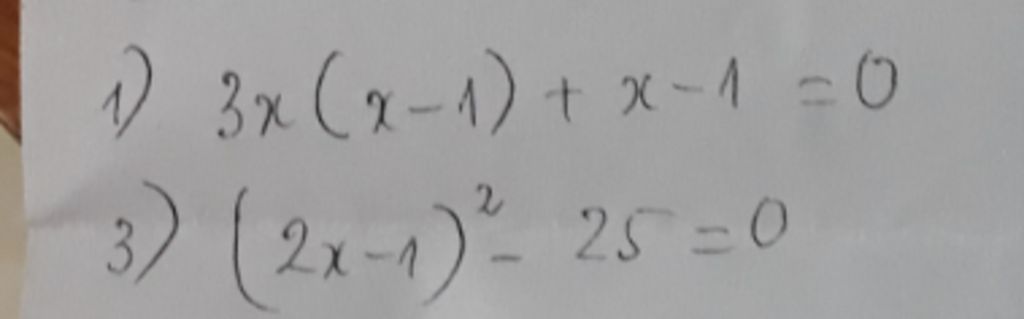 1) 3x(x-1) + x-1 = 0
3) (2x-1)² - 25 = 0